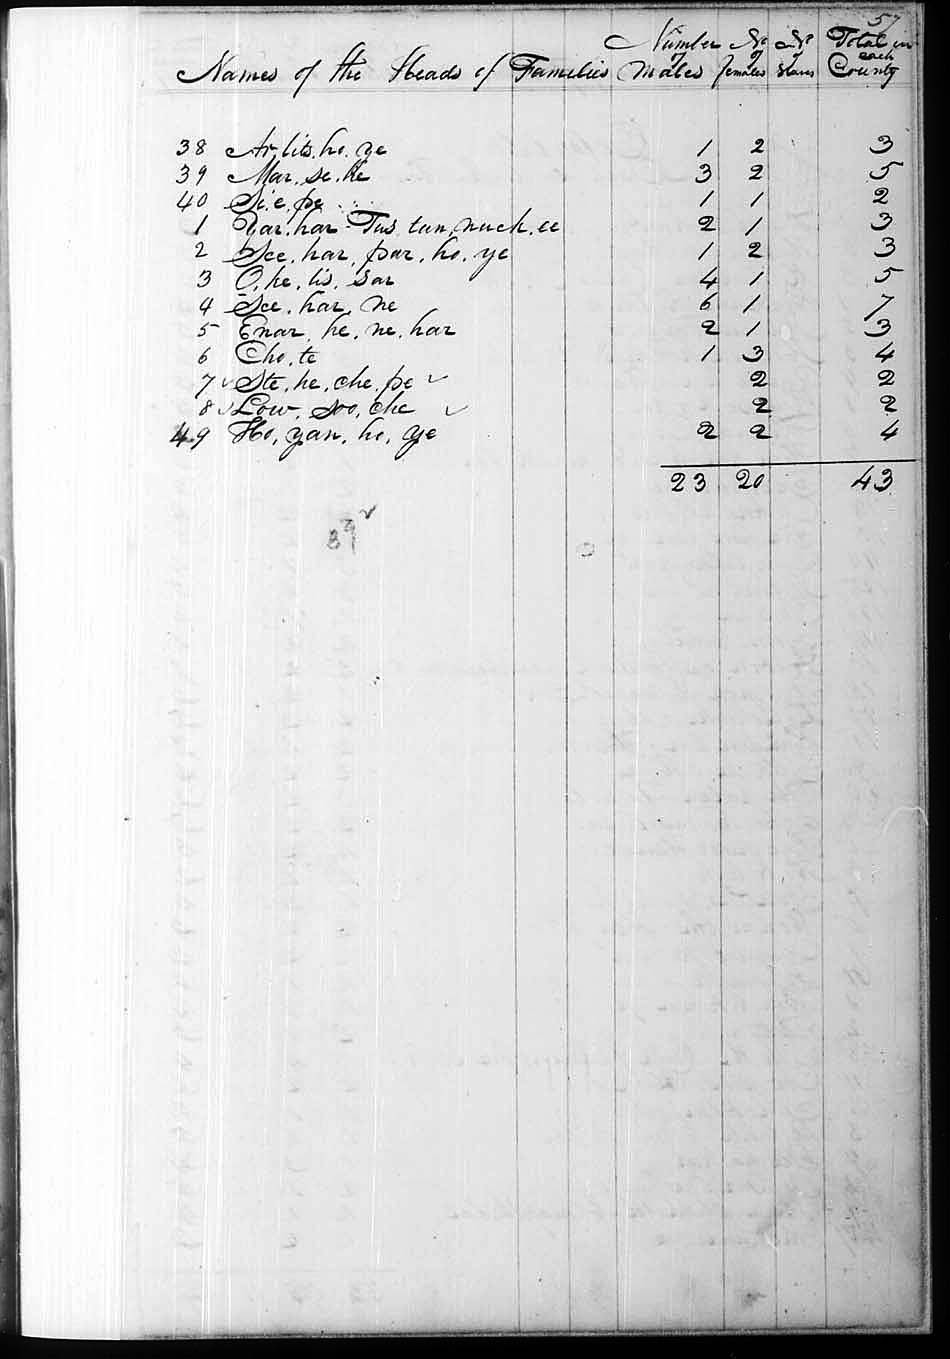 57
Names of the Heads of Families Number of Males No of females No of Slaves Total in each County
38 Ar, lits, ho, ye 1 2 3
39 Mar, se, ke 3 2 5
40 Si, e, pe 1 1 2
1 Yar, har Tus tun, nuch, ee 2 1 3
2 See, har, par, ho, ye 1 2 3
3 O, he, lis, sar 4 1 5
4 See, har, ne 6 1 7
5 Enar, he, ne, har 2 1 3
6 Cho, te 1 3 4
7 ✓ Ste, he, che, pe ✓ 2 2
8 ✓ Low, soo, che ✓ 2 2
49 Ho, yan, ho, ye 2 2 4
23 20 43
39 ✓